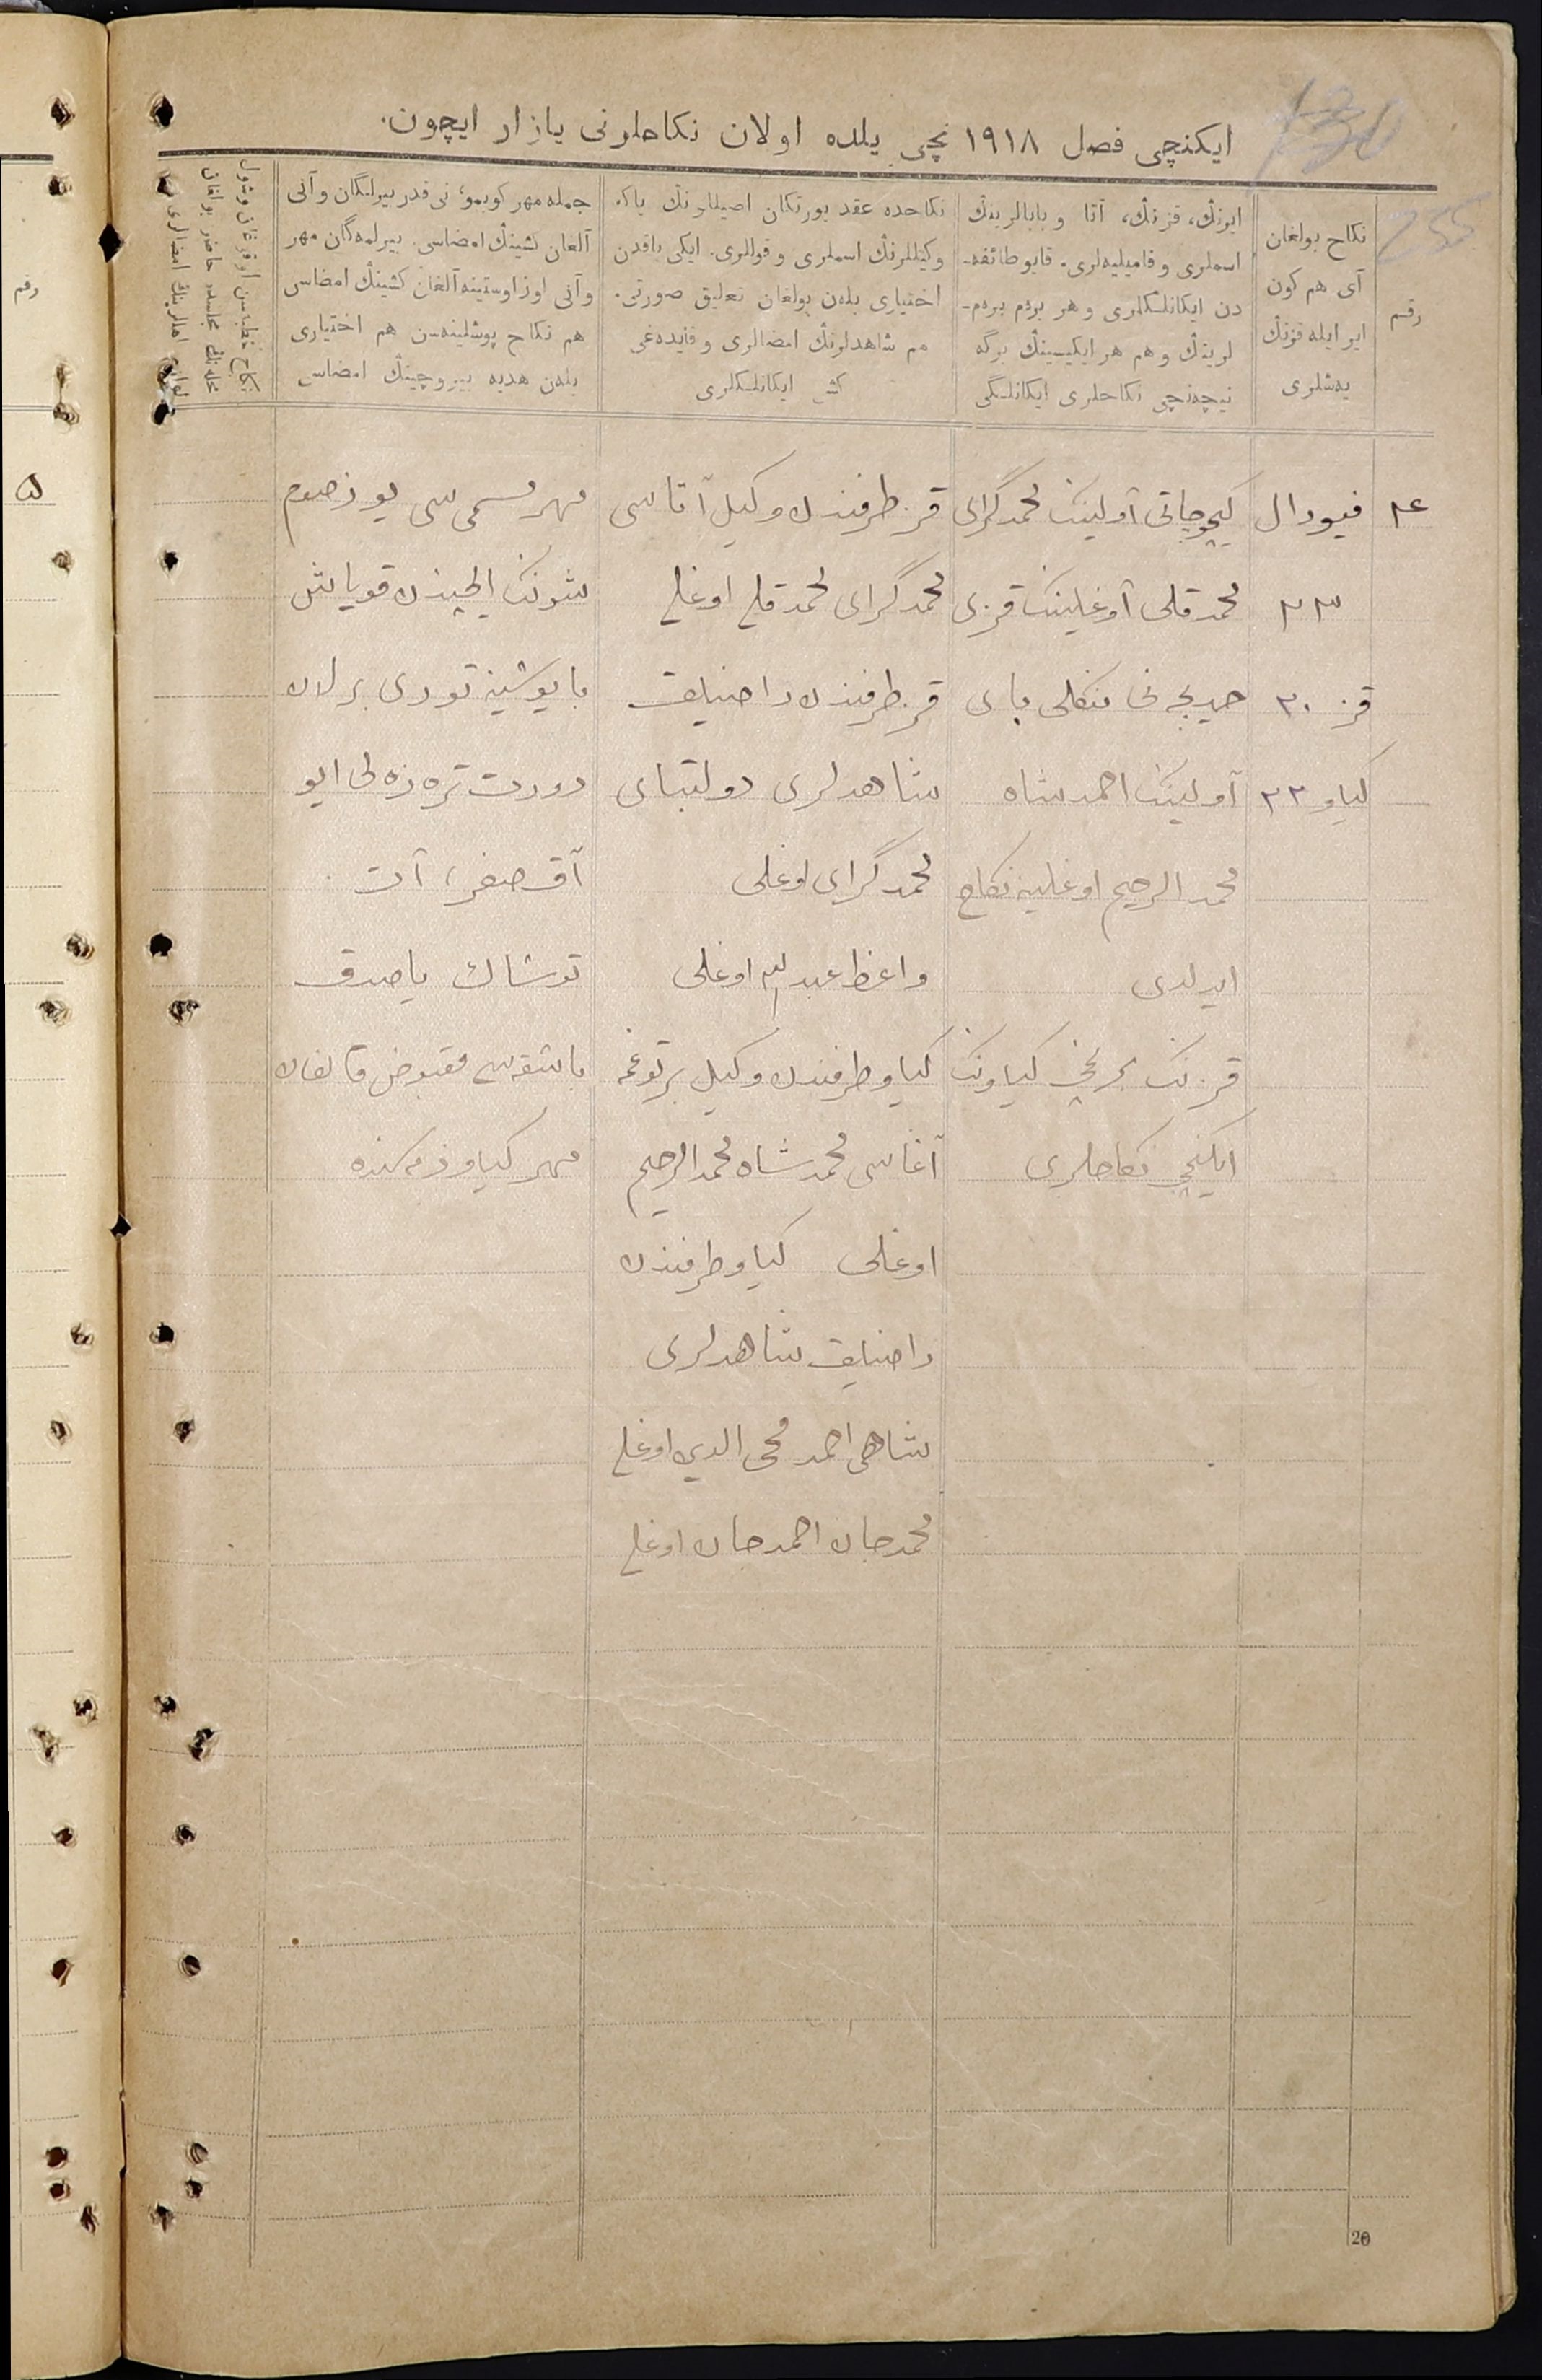 ایکنچی فصل ١٩١٨ نچی یلده اولان نکاحلرنی یازار ایچون.
255
رقم
نکاح بولغان
آی هم کون
ایر ایله قزنڭ
یەشلری
ایرنڭ، قزنڭ، آتا و بابالرینڭ
اسملری و فامیلیەلری. قایو طائفه-
دن ایکانلکلری و هر بردم بردم-
لرینڭ و هم هر ایکیسینڭ برگه
نیچەنچی نکاحلری ایکانلگی
نکاحده عقد یورتکان اصیللرنڭ یاکه
وکیللرنڭ اسملری و قوللری. ایکی یاقدن
اختیاری بلەن بولغان تعلیق صورتی.
هم شاهدلرنڭ امضالری و قایدەغی
کشی ایکانلکلری
جمله مهر کوبمو، نی قدر بیرلگان و آنی
آلغان کشینڭ امضاسی. بیرلمەگان مهر
و آنی اوز اوستینه آلغان کشینڭ امضاسی
هم نکاح پوشلینەسن هم اختیاری
بلەن هدیه بیروچینڭ امضاسی
٢٤
فیورال
٢٣
قز ٢٠
کیاو ٢٢
کیچوچاتی آولینڭ محمدگرای
محمدقلی آوغلینڭ قزی
خدیجەنی منکلی بای
آولینڭ احمدشاه
محمد الرحیم اوغلینه نکاح
ایدلدی
قزنڭ برنچی کیاونڭ
ایکنچی نکاحلری
قز طرفندن وکیل آتاسی
محمدگرای محمدقلی اوغلی
قز طرفندن راضیلق
شاهدلری دولتبای
محمدگرای اوغلی
واعظ عبدالله اوغلی
کیاو طرفندن وکیل برتوغمه
آغاسی محمدشاه محمدالرحیم
اوغلی کیاو طرفندن
راضیلق شاهدلری
شاهی احمد محی الدین اوغلی
محمدجان احمدجان اوغلی
مهر مسمی سی یوز صوم
شونڭ ایچندن قویاش
بایوشینه توری برلان
دورت ترەزەلی ایو
آق صغر، آت
توشاك یاصدق
باشقەسی مقبوض قالغان
مهر کیاو ذمەسنده
رقم
۵
20